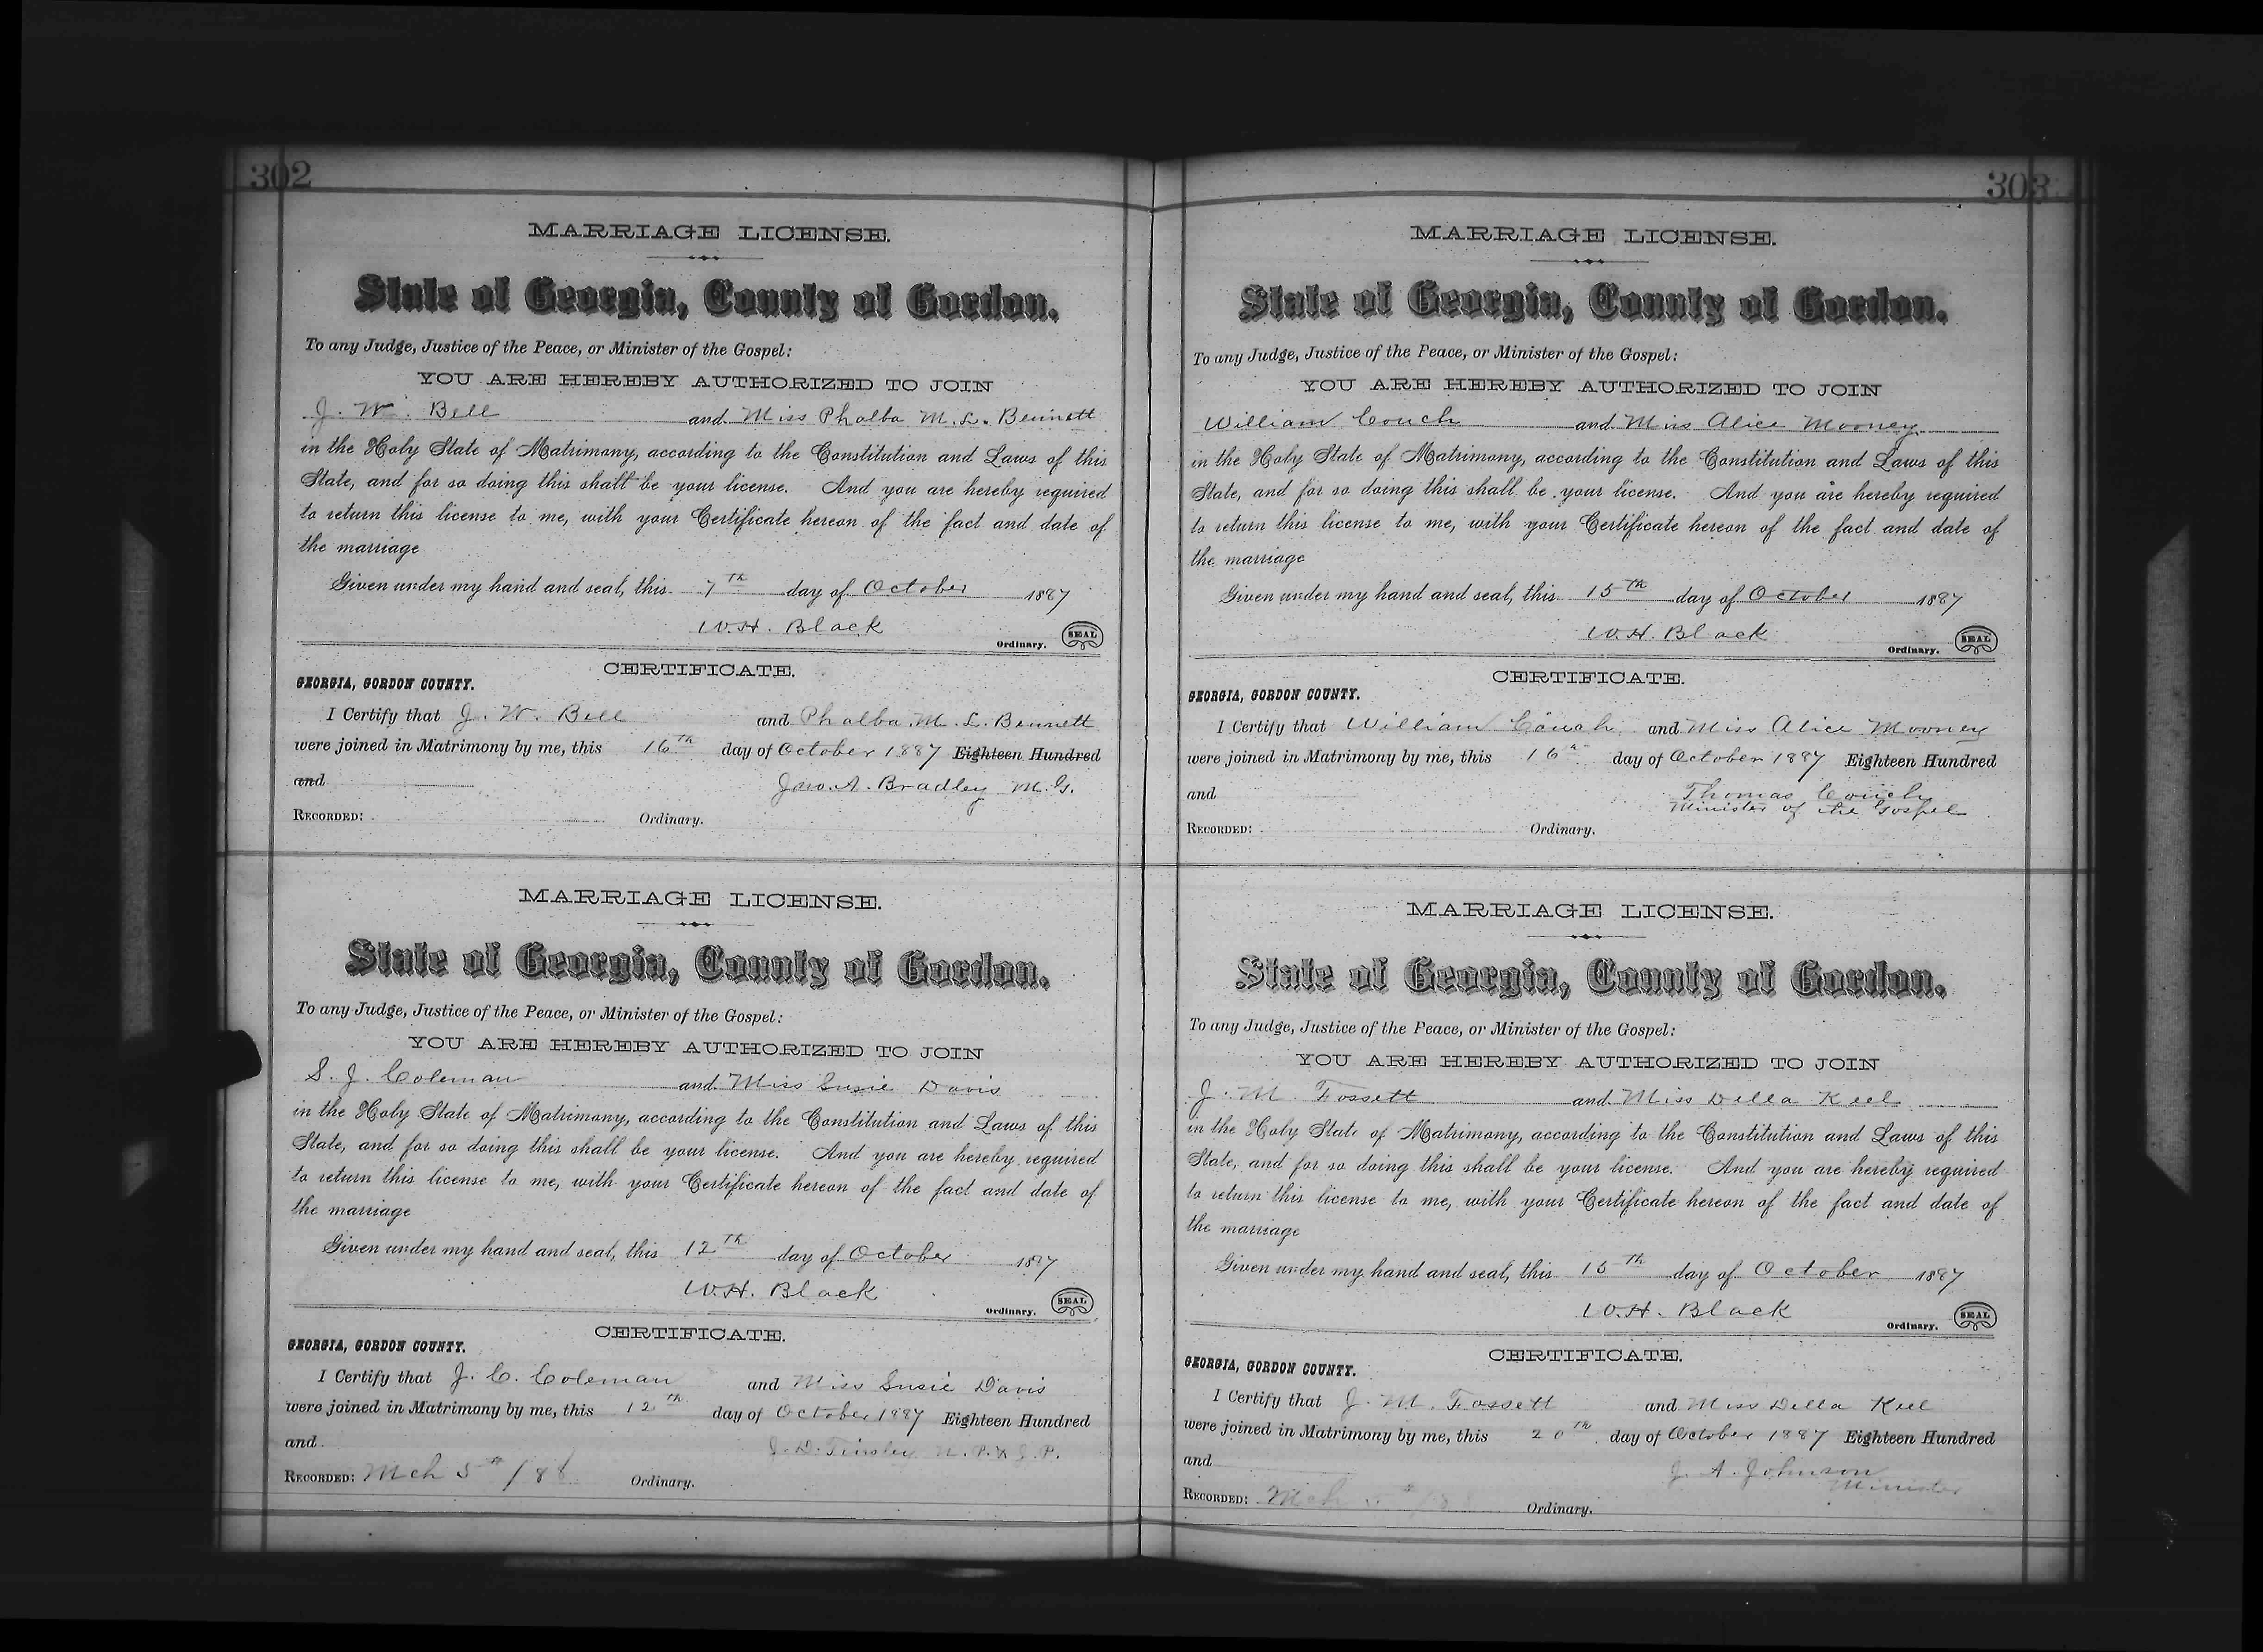 302
MARRIAGE LICENSE.
State of Georgia, County of Gordon.
To any Judge, Justice of the Peace, or Minister of the Gospel:
YOU ARE HEREBY AUTHORIZED TO JOIN
J. W. Bell and Miss Phalba M. L. Bennett
in the Holy State of Matrimony, according to the Constitution and Laws of this
State, and for so doing this shall be your license. And you are hereby required
to return this license to me, with your Certificate hereon of the fact and date of
the marriage
Given under my hand and seal, this 7th day of October 1887
W.H. Black
Ordinary. SEAL
CERTIFICATE.
GEORGIA, GORDON COUNTY.
I Certify that J. W. Bell and Phalba M. L. Bennett
were joined in Matrimony by me, this 16th day of October 1887 Eighteen Hundred
and Jno. A. Bradley M.G.
RECORDED: Ordinary.
MARRIAGE LICENSE.
State of Georgia, County of Gordon.
To any Judge, Justice of the Peace, or Minister of the Gospel:
YOU ARE HEREBY AUTHORIZED TO JOIN
S. J. Coleman and Miss Susie Davis
in the Holy State of Matrimony, according to the Constitution and Laws of this
State, and for so doing this shall be your license. And you are hereby required
to return this license to me, with your Certificate hereon of the fact and date of
the marriage
Given under my hand and seal, this 12th day of October 1887
W.H. Black
Ordinary. SEAL
CERTIFICATE.
GEORGIA, GORDON COUNTY.
I Certify that J. C. Coleman and Miss Susie Davis
were joined in Matrimony by me, this 12th day of October 1887 Eighteen Hundred
and J. D. Tinsley N. P. & J. P.
RECORDED: Mch 5th /88 Ordinary.
303
MARRIAGE LICENSE.
State of Georgia, County of Gordon.
To any Judge, Justice of the Peace, or Minister of the Gospel:
YOU ARE HEREBY AUTHORIZED TO JOIN
William Couch and Miss Alice Mooney
in the Holy State of Matrimony, according to the Constitution and Laws of this
State, and for so doing this shall be your license. And you are hereby required
to return this license to me, with your Certificate hereon of the fact and date of
the marriage
Given under my hand and seal, this 15th day of October 1887
W.H. Black
Ordinary. SEAL
CERTIFICATE.
GEORGIA, GORDON COUNTY.
I Certify that William Couch and Miss Alice Mooney
were joined in Matrimony by me, this 16th day of October 1887 Eighteen Hundred
and Thomas Couch
Minister of the Gospel
RECORDED: Ordinary.
MARRIAGE LICENSE.
State of Georgia, County of Gordon.
To any Judge, Justice of the Peace, or Minister of the Gospel:
YOU ARE HEREBY AUTHORIZED TO JOIN
J. M. Fossett and Miss Della Keel
in the Holy State of Matrimony, according to the Constitution and Laws of this
State, and for so doing this shall be your license. And you are hereby required
to return this license to me, with your Certificate hereon of the fact and date of
the marriage
Given under my hand and seal, this 15th day of October 1887
W.H. Black
Ordinary. SEAL
CERTIFICATE.
GEORGIA, GORDON COUNTY.
I Certify that J. M. Fossett and Miss Della Keel
were joined in Matrimony by me, this 20th day of October 1887 Eighteen Hundred
and J. A. Johnson
Minister
RECORDED: Mch Ordinary.